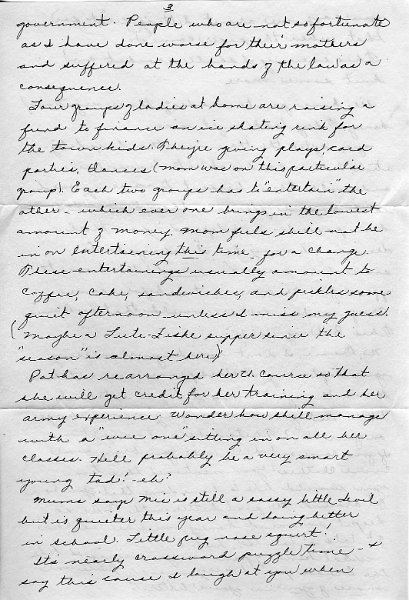 3
government. People who are not so fortunate
as I have done worse for their mothers
and suffered at the hands of the law as a
consequence.
Four groups of ladies at home are raising a
fund to finance an ice skating rink for
the town kids. They're giving plays, card
parties, dances (Mom was on this particular
group). Each two groups has to "entertain" the
other - which ever one brings in the lowest
amount of money. Mom feels she'll not be
in on entertaining this time - for a change.
These entertainings usually amount to
coffee, cake, sandwiches, and pickles some
quiet afternoon - unless I miss my guess.
(Maybe a Lute Fishe supper since the
"season" is almost here)
Pat has rearranged her course so that
she will get credit for her training and her
army experience. Wonder how she'll manage
with a "wee one" sitting in on all her
classes. He'll probably be a very smart
young tad! - eh?
Mums says Mic is still a sassy little devil
but is quieter this year and doing better
in school. Little pug nose squirt!
Its nearly crossword puzzle time - I
say this cause I laugh at you when